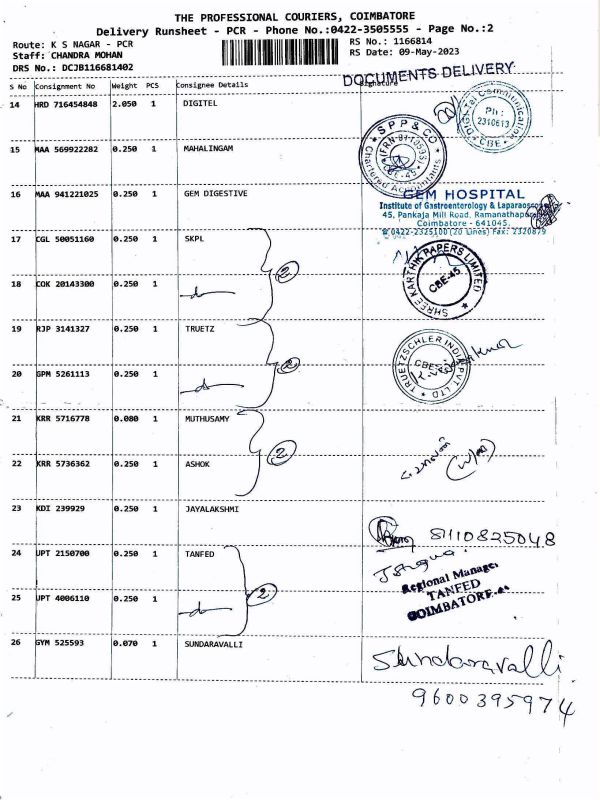 THE PROFESSIONAL COURIERS, COIMBATORE
Delivery Runsheet - PCR - Phone No.:0422-3505555 - Page No.:2
Route: K S NAGAR - PCR
RS No.: 1166814
Staff: CHANDRA MOHAN
RS Date: 09-May-2023
DRS No.: DCJB116681402
DOCUMENTS DELIVERY
S No Consignment No Weight PCS Consignee Details Signature
14 HRD 716454848 2.050 1 DIGITEL
Digital Communication
Ph :
2310613
CBE
15 MAA 569922282 0.250 1 MAHALINGAM
SPP & CO
Chartered Accountants
16 MAA 941221025 0.250 1 GEM DIGESTIVE
GEM HOSPITAL
Institute of Gastroenterology & Laparoscop
45, Pankaja Mill Road, Ramanathapuram
Coimbatore - 641045.
0422-2325100 (20 Lines) Fax: 2320879
17 CGL 50051160 0.250 1 SKPL
2
SHREE KARTHIK PAPERS LIMITED
CBE-45
18 COK 20143300 0.250 1
19 RJP 3141327 0.250 1 TRUETZ
2
TRUETZSCHLER INDIA PVT LTD
20 GPM 5261113 0.250 1
21 KRR 5716778 0.080 1 MUTHUSAMY
2
22 KRR 5736362 0.250 1 ASHOK
23 KDI 239929 0.250 1 JAYALAKSHMI
8110825048
24 UPT 2150700 0.250 1 TANFED
2
Regional Manager
TANFED
COIMBATORE
25 UPT 4006110 0.250 1
26 GYM 525593 0.070 1 SUNDARAVALLI
Sundaravalli
9600395974